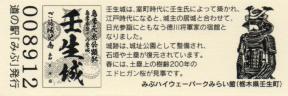 008912
道の駅「みぶ」発行
壬生城
壬生城は、室町時代に壬生氏によって築かれ、
江戸時代になると、城主の居城と合わせて、
日光街道にともなう徳川将軍家の宿館と
なりました。
城跡は、城址公園として整備され、
石垣や土塁が復元されています。
春には、土塁上の樹齢200年の
エドヒガン桜が見事です。
みぶハイウェーパークみらい館(栃木県壬生町)